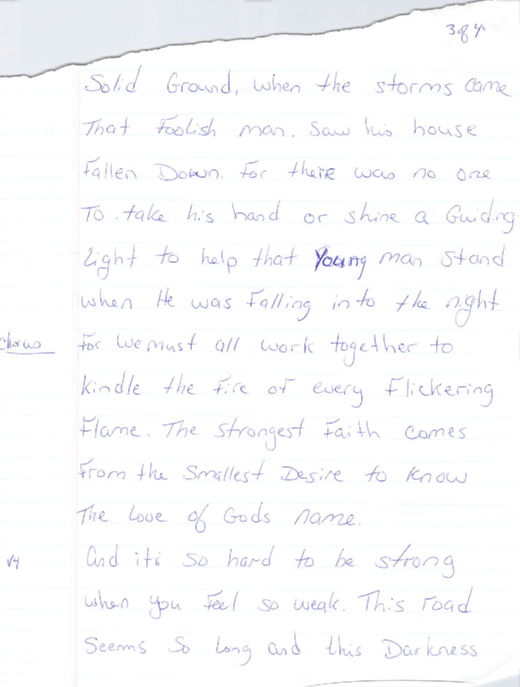 3 of 4
Solid Ground, when the storms came
That Foolish man. Saw his house
Fallen Down. For there was no one
To take his hand or shine a Guiding
Light to help that Young man Stand
when He was Falling into the night
Chorus For we must all work together to
kindle the Fire of every Flickering
Flame. The Strongest Faith comes
From the Smallest Desire to Know
The Love of Gods name.
V4 And it's so hard to be strong
when you Feel so weak. This road
Seems So Long and this Darkness